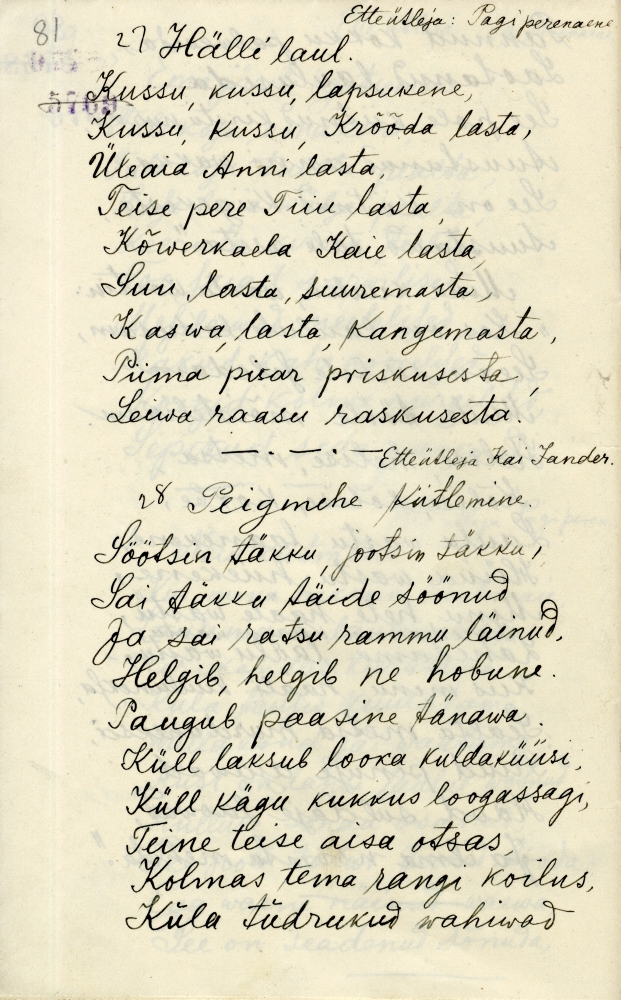 81
Etteütleja: Pagi perenaene
27 Hälli laul.
Kussu, kussu, lapsukene,
Kussu, kussu, Krõõda lasta,
Üleaia Anni lasta,
Teise pere Tiiu lasta,
Kõwerkaela Kaie lasta,
Suu lasta, suuremasta,
Kaswa, lasta, kangemasta,
Piima pisar priskusesta,
Leiwa raasu raskusesta.
Etteütleja Kai Sander.
28 Peigmehe kiitlemine.
Söötsin täkku, jootsin täkku,
Sai täkku täide söönud
Ja sai ratsu rammu läinud,
Helgib, helgib ne hobune.
Paugub paasine tänawa.
Küll laksub looka kuldaküüsi,
Küll kägu kukkus loogassagi,
Teine teise aisa otsas,
Kolmas tema rangi koilus,
Küla tüdrukud wahiwad